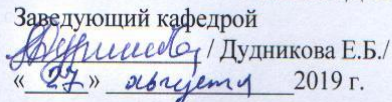 Заведующий кафедрой
/ Дудникова Е.Б./
« 27 » августа 2019 г.